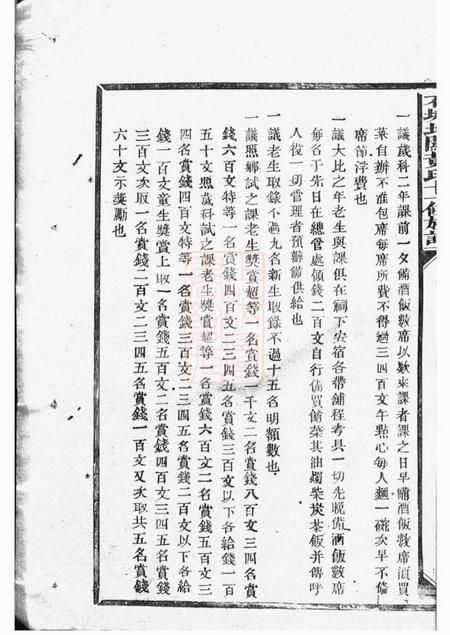 一議歲科二年課前一夕備酒飯數席以欵來課者課之日早備酒飯數席須買
菜自辦不准包席每席所費不得過三四百文午點心每人麵一碗次早不備
席節浮費也
一議大比之年老生與課俱在祠下安宿各帶舖程考具一切先晚俻酒飯數席
每名于先日在總管處領錢二百文自行俻買餚菜其油燭柴炭茶飯并傳呼
人役一切管理者預辦俻供給也
一議老生取錄不過九名新生取錄不過十五名明額數也
一議照鄉試之課老生獎賞超等一名賞錢一千文二名賞錢八百文三四名賞
錢六百文特等一名賞錢四百文二三四五名賞錢三百文以下各給錢一百
五十文照歲科試之課老生獎賞超等一名賞錢六百文二名賞錢五百文三
四名賞錢四百文特等一名賞錢三百文二三四五名賞錢二百文以下各給
錢一百文童生獎賞上取一名賞錢五百文二名賞錢四百文三四五名賞錢
三百文次取一名賞錢二百文二三四五名賞錢一百文又次取共五名賞錢
六十文示奬勵也